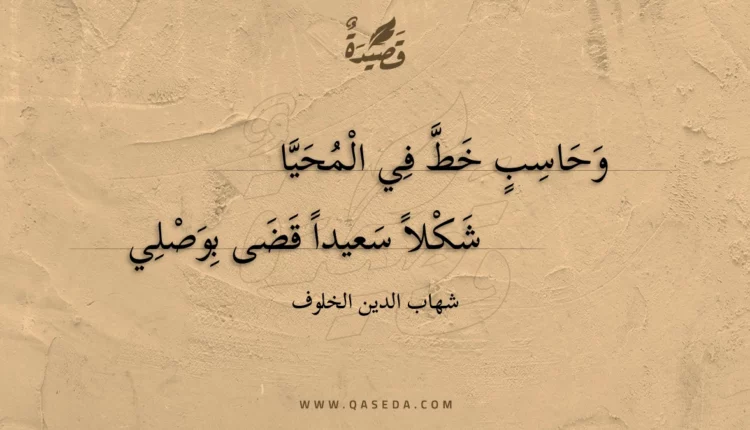 قَصِيْدَةٌ
وَحَاسِبٍ خَطَّ فِي الْمُحَيَّا
شَكْلاً سَعيداً قَضَى بِوَصْلِي
شهاب الدين الخلوف
WWW.QASEDA.COM